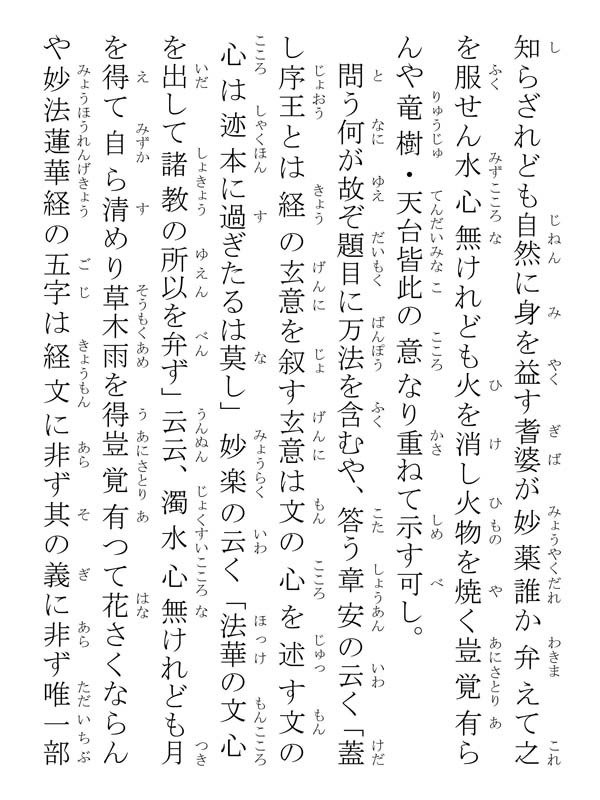 知らざれども自然に身を益す耆婆が妙薬誰か弁えて之
を服せん水心無けれども火を消し火物を焼く豈覚有ら
んや竜樹・天台皆此の意なり重ねて示す可し。
問う何が故ぞ題目に万法を含むや、答う章安の云く「蓋
し序王とは経の玄意を叙す玄意は文の心を述す文の
心は迹本に過ぎたるは莫し」妙楽の云く「法華の文心
を出して諸教の所以を弁ず」云云、濁水心無けれども月
を得て自ら清めり草木雨を得豈覚有つて花さくならん
や妙法蓮華経の五字は経文に非ず其の義に非ず唯一部